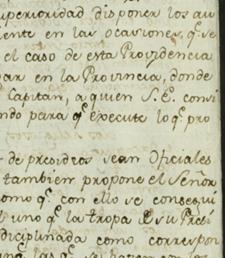 uperioridad disponer los au
iente en las ocasiones, q.e se
el caso de esta Providencia
dar en la Provincia, donde
Capitan, a quien S.E. consi
ndo para q.e execute lo q.e pro
r de presidios sean Oficiales
tambien propone el Señor
omo q.e con ello se consegui
l uno q.e la tropa de su Presi
diciplinada como correspon
las q.e se